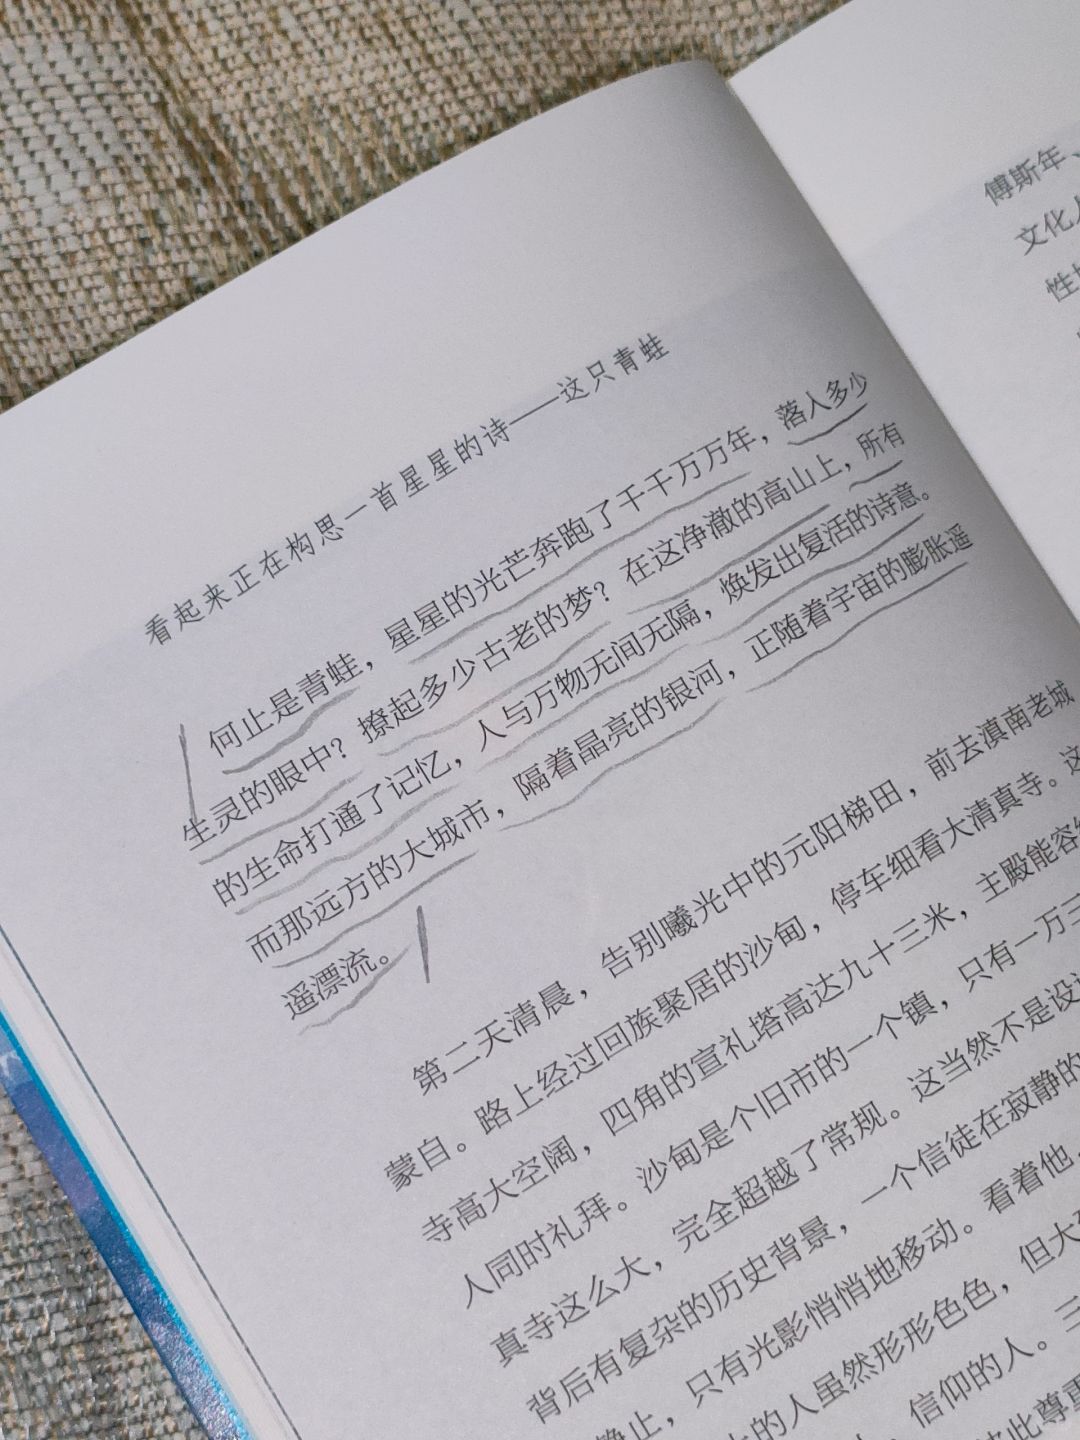 看起来正在构思一首星星的诗——这只青蛙
何止是青蛙，星星的光芒奔跑了千千万万年，落入多少
生灵的眼中？撩起多少古老的梦？在这净澈的高山上，所有
的生命打通了记忆，人与万物无间无隔，焕发出复活的诗意。
而那远方的大城市，隔着晶亮的银河，正随着宇宙的膨胀遥
遥漂流。
第二天清晨，告别曦光中的元阳梯田，前去滇南老城
蒙自。路上经过回族聚居的沙甸，停车细看大清真寺。这
寺高大空阔，四角的宣礼塔高达九十三米，主殿能容
人同时礼拜。沙甸是个旧市的一个镇，只有一万三
真寺这么大，完全超越了常规。这当然不是设
背后有复杂的历史背景，一个信徒在寂静的
静止，只有光影悄悄地移动。看着他，
的人虽然形形色色，但大
信仰的人。三
此尊重
傅斯年、
文化
性